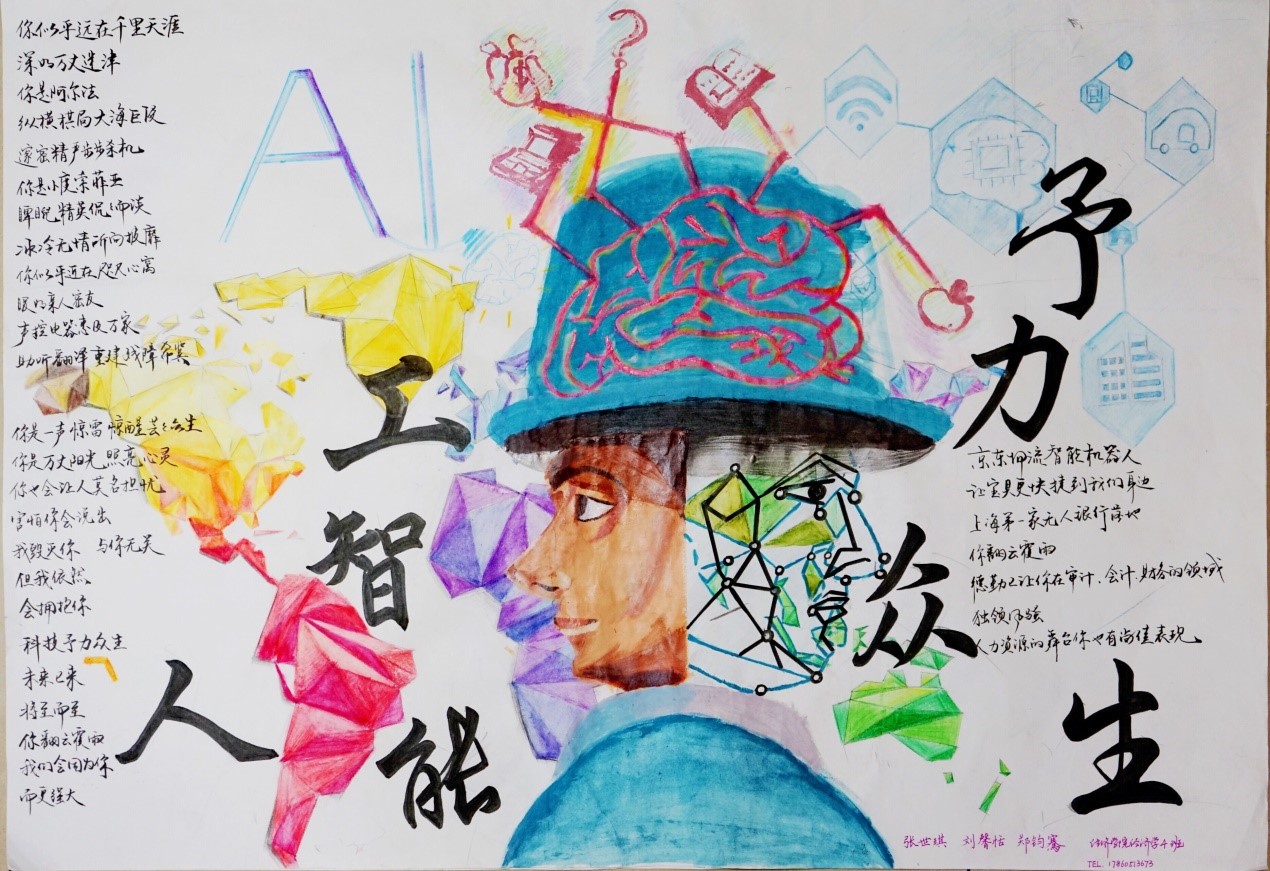 你似乎远在千里天涯
深如万丈迷津
你是阿尔法
纵横棋局大海巨浪
邃密精严步步杀机
你是小度索菲亚
睥睨精英侃而谈
冰冷无情所向披靡
你似乎近在咫尺心窝
暖如亲人密友
声控电器惠及万家
助听翻译重建残障希冀
你是一声惊雷 惊醒芸芸众生
你是万丈阳光 照亮心灵
你也会让人莫名担忧
害怕你会说出
我毁灭你 与你无关
但我依然
会拥抱你
科技予力众生
未来已来
将至而至
你翻云覆雨
我们会因为你
而更强大
AI
人
工
智
能
予
力
众
生
京东物流智能机器人
让宝贝更快捷到我们身边
上海第一家无人银行落地
你翻云覆雨
德勤已让你在审计、会计、财务的领域
独领风骚
人力资源的舞台你也有尚佳表现
张世琪 刘馨恬 郑钧骞 经济学院经济学4班
TEL 17860513673